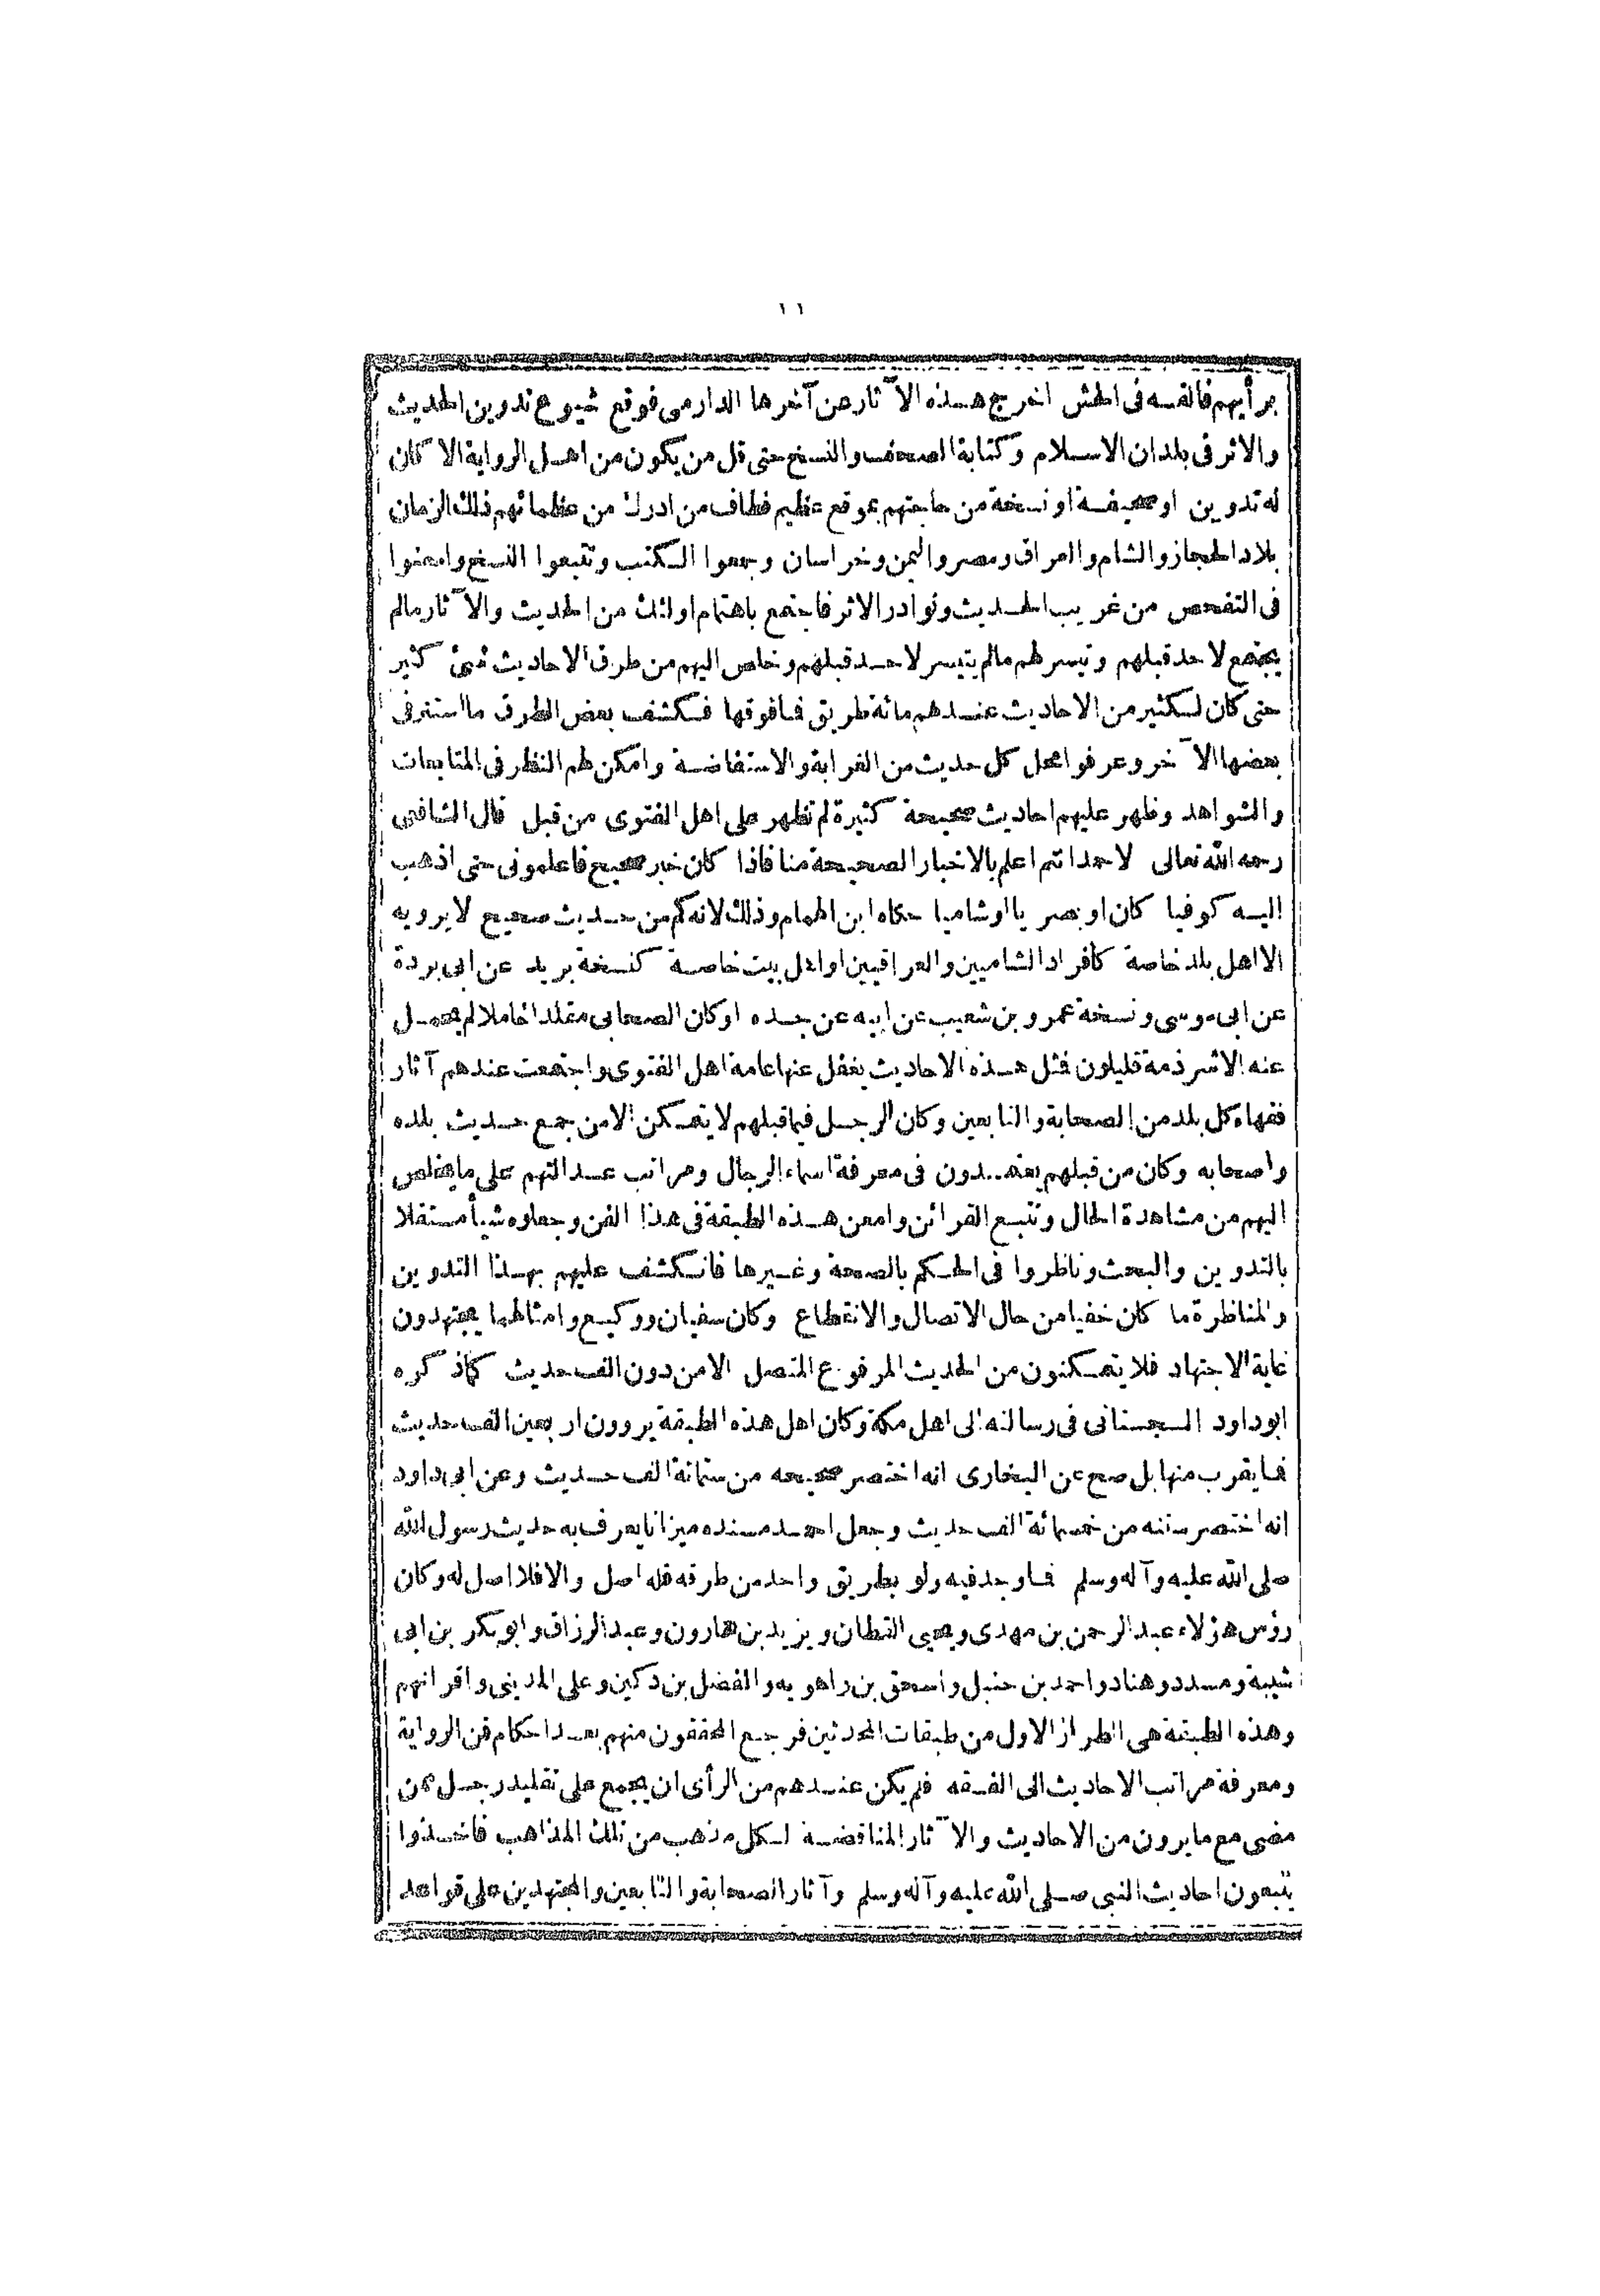 ١١
برأيهم فالقه فى الحش اخرج هذه الآثار عن آخرها الدارمى فوقع شيوع تدوين الحديث
والاثر فى بلدان الاسلام وكتابة الصحف والنسخ حتى قل من يكون من اهل الرواية الا كان
له تدوين او صحيفة او نسخة من حاجتهم بموقع عظيم فطاف من ادرك من عظمائهم ذلك الزمان
بلاد الحجاز والشام والعراق ومصر واليمن وخراسان وجمعوا الكتب وتتبعوا النسخ وامعنوا
فى التفحص من غريب الحديث ونوادر الاثر فاجتمع باهتمام اولئك من الحديث والآثار مالم
يجتمع لاحد قبلهم وتيسر لهم مالم يتيسر لاحد قبلهم وخلص اليهم من طرق الاحاديث شئ كثير
حتى كان لكثير من الاحاديث عندهم مائة طريق فما فوقها فكشف بعض الطرق ما استتر فى
بعضها الآخر وعرفوا محل كل حديث من الغرابة والاستفاضة وامكن لهم النظر فى المتابعات
والشواهد وظهر عليهم احاديث صحيحة كثيرة لم تظهر على اهل الفتوى من قبل قال الشافعى
رحمه الله تعالى لاحمد انتم اعلم بالاخبار الصحيحة منا فاذا كان خبر صحيح فاعلمونى حتى اذهب
اليه كوفيا كان او بصريا او شاميا حكاه ابن الهمام وذلك لانه كم من حديث صحيح لا يرويه
الا اهل بلد خاصة كافراد الشاميين والعراقيين او اهل بيت خاصة كنسخة بريد عن ابى بردة
عن ابى موسى ونسخة عمرو بن شعيب عن ابيه عن جده او كان الصحابى مقلا خاملا لم يحمل
عنه الا شرذمة قليلون فمثل هذه الاحاديث يغفل عنها عامة اهل الفتوى واجتمعت عندهم آثار
فقهاء كل بلد من الصحابة والتابعين وكان الرجل فيما قبلهم لا يتمكن الا من جمع حديث بلده
واصحابه وكان من قبلهم يعتمدون فى معرفة اسماء الرجال ومراتب عدالتهم على ما يخلص
اليهم من مشاهدة الحال وتتبع القرائن وامعن هذه الطبقة فى هذا الفن وجعلوه شيأ مستقلا
بالتدوين والبحث وناظروا فى الحكم بالصحة وغيرها فانكشف عليهم بهذا التدوين
والمناظرة ما كان خفيا من حال الاتصال والانقطاع وكان سفيان ووكيع وامثالهما يجتهدون
غاية الاجتهاد فلا يتمكنون من الحديث المرفوع المتصل الا من دون الف حديث كما ذكره
ابو داود السجستانى فى رسالته الى اهل مكة وكان اهل هذه الطبقة يروون اربعين الف حديث
فما يقرب منها بل صح عن البخارى انه اختصر صحيحه من ستمائة الف حديث وعن ابى داود
انه اختصر سننه من خمسمائة الف حديث وجعل احمد مسنده ميزانا يعرف به حديث رسول الله
صلى الله عليه وآله وسلم فما وجد فيه ولو بطريق واحد من طرقه فله اصل والا فلا اصل له وكان
رؤس هؤلاء عبد الرحمن بن مهدى ويحيى القطان ويزيد بن هارون وعبد الرزاق وابو بكر بن ابى
شيبة ومسدد وهناد واحمد بن حنبل واسحق بن راهويه والفضل بن دكين وعلى المدينى واقرانهم
وهذه الطبقة هى الطراز الاول من طبقات المحدثين فرجع المحققون منهم بعد احكام فن الرواية
ومعرفة مراتب الاحاديث الى الفقه فلم يكن عندهم من الرأى ان يجمع على تقليد رجل ممن
مضى مع ما يرون من الاحاديث والآثار المناقضة لكل مذهب من تلك المذاهب فاخذوا
يتبعون احاديث النبى صلى الله عليه وآله وسلم وآثار الصحابة والتابعين والمجتهدين على قواعد